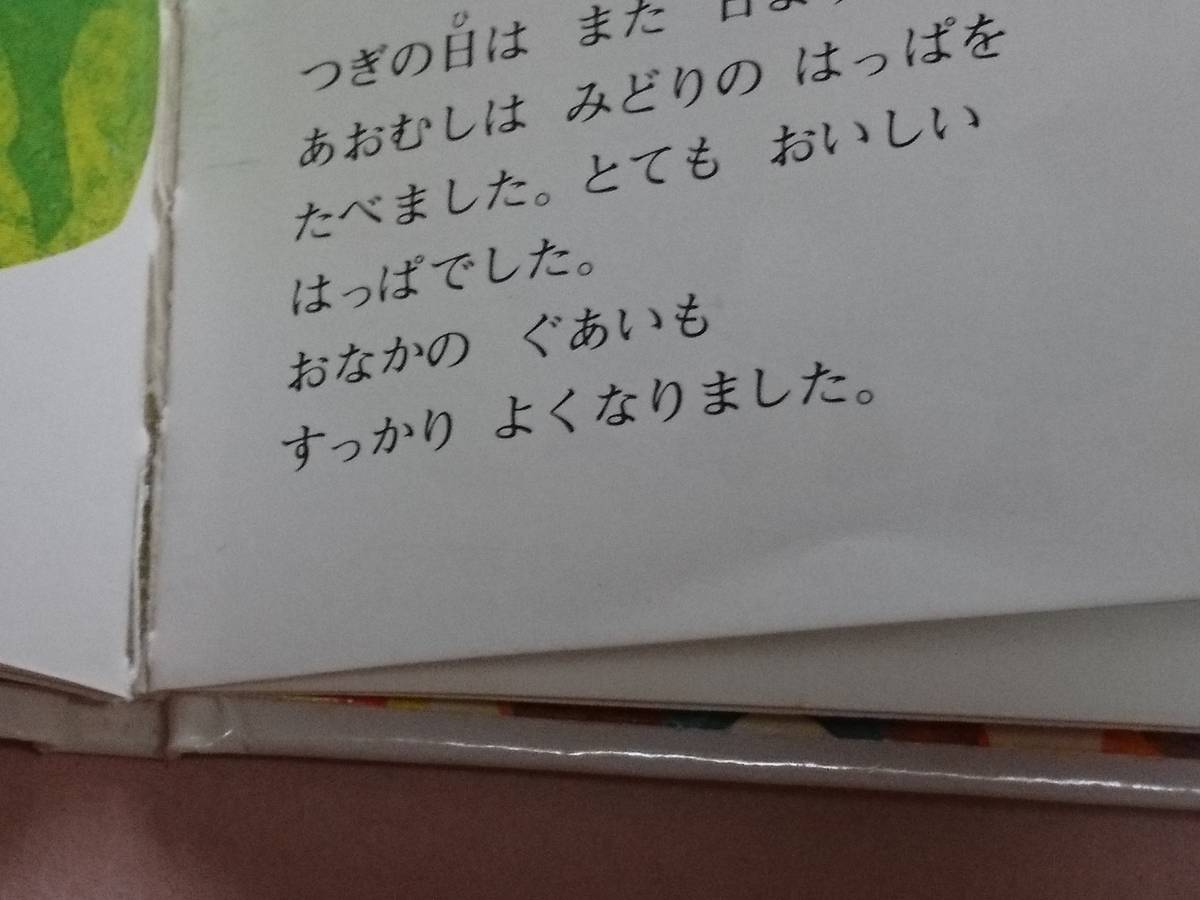 つぎの日は また
あおむしは みどりの はっぱを
たべました。とても おいしい
はっぱでした。
おなかの ぐあいも
すっかり よくなりました。